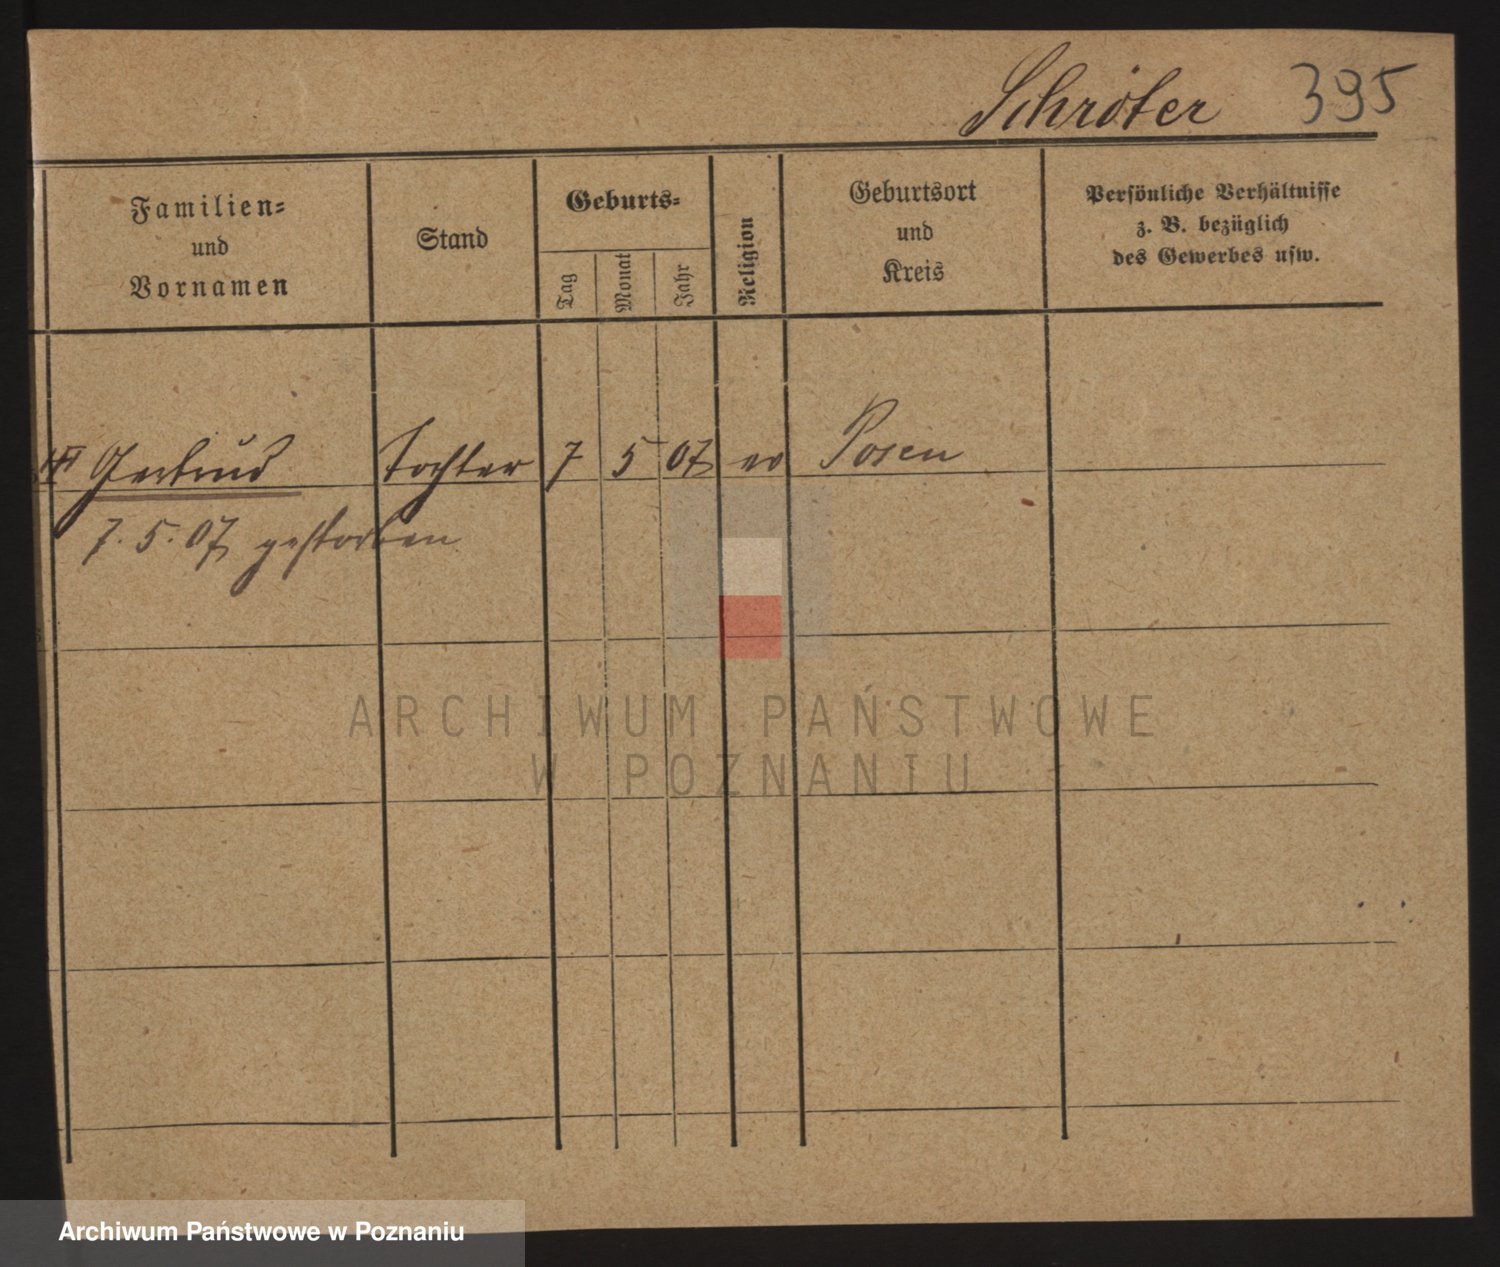 Schröter 395
Familien-
und
Vornamen
Stand
Geburts-
Tag
Monat
Jahr
Religion
Geburtsort
und
Kreis
Persönliche Verhältnisse
z. B. bezüglich
des Gewerbes usw.
Gertrud Tochter 7 5 07 ev Posen
7. 5. 07 gestorben
ARCHIWUM PAŃSTWOWE
W POZNANIU
Archiwum Państwowe w Poznaniu